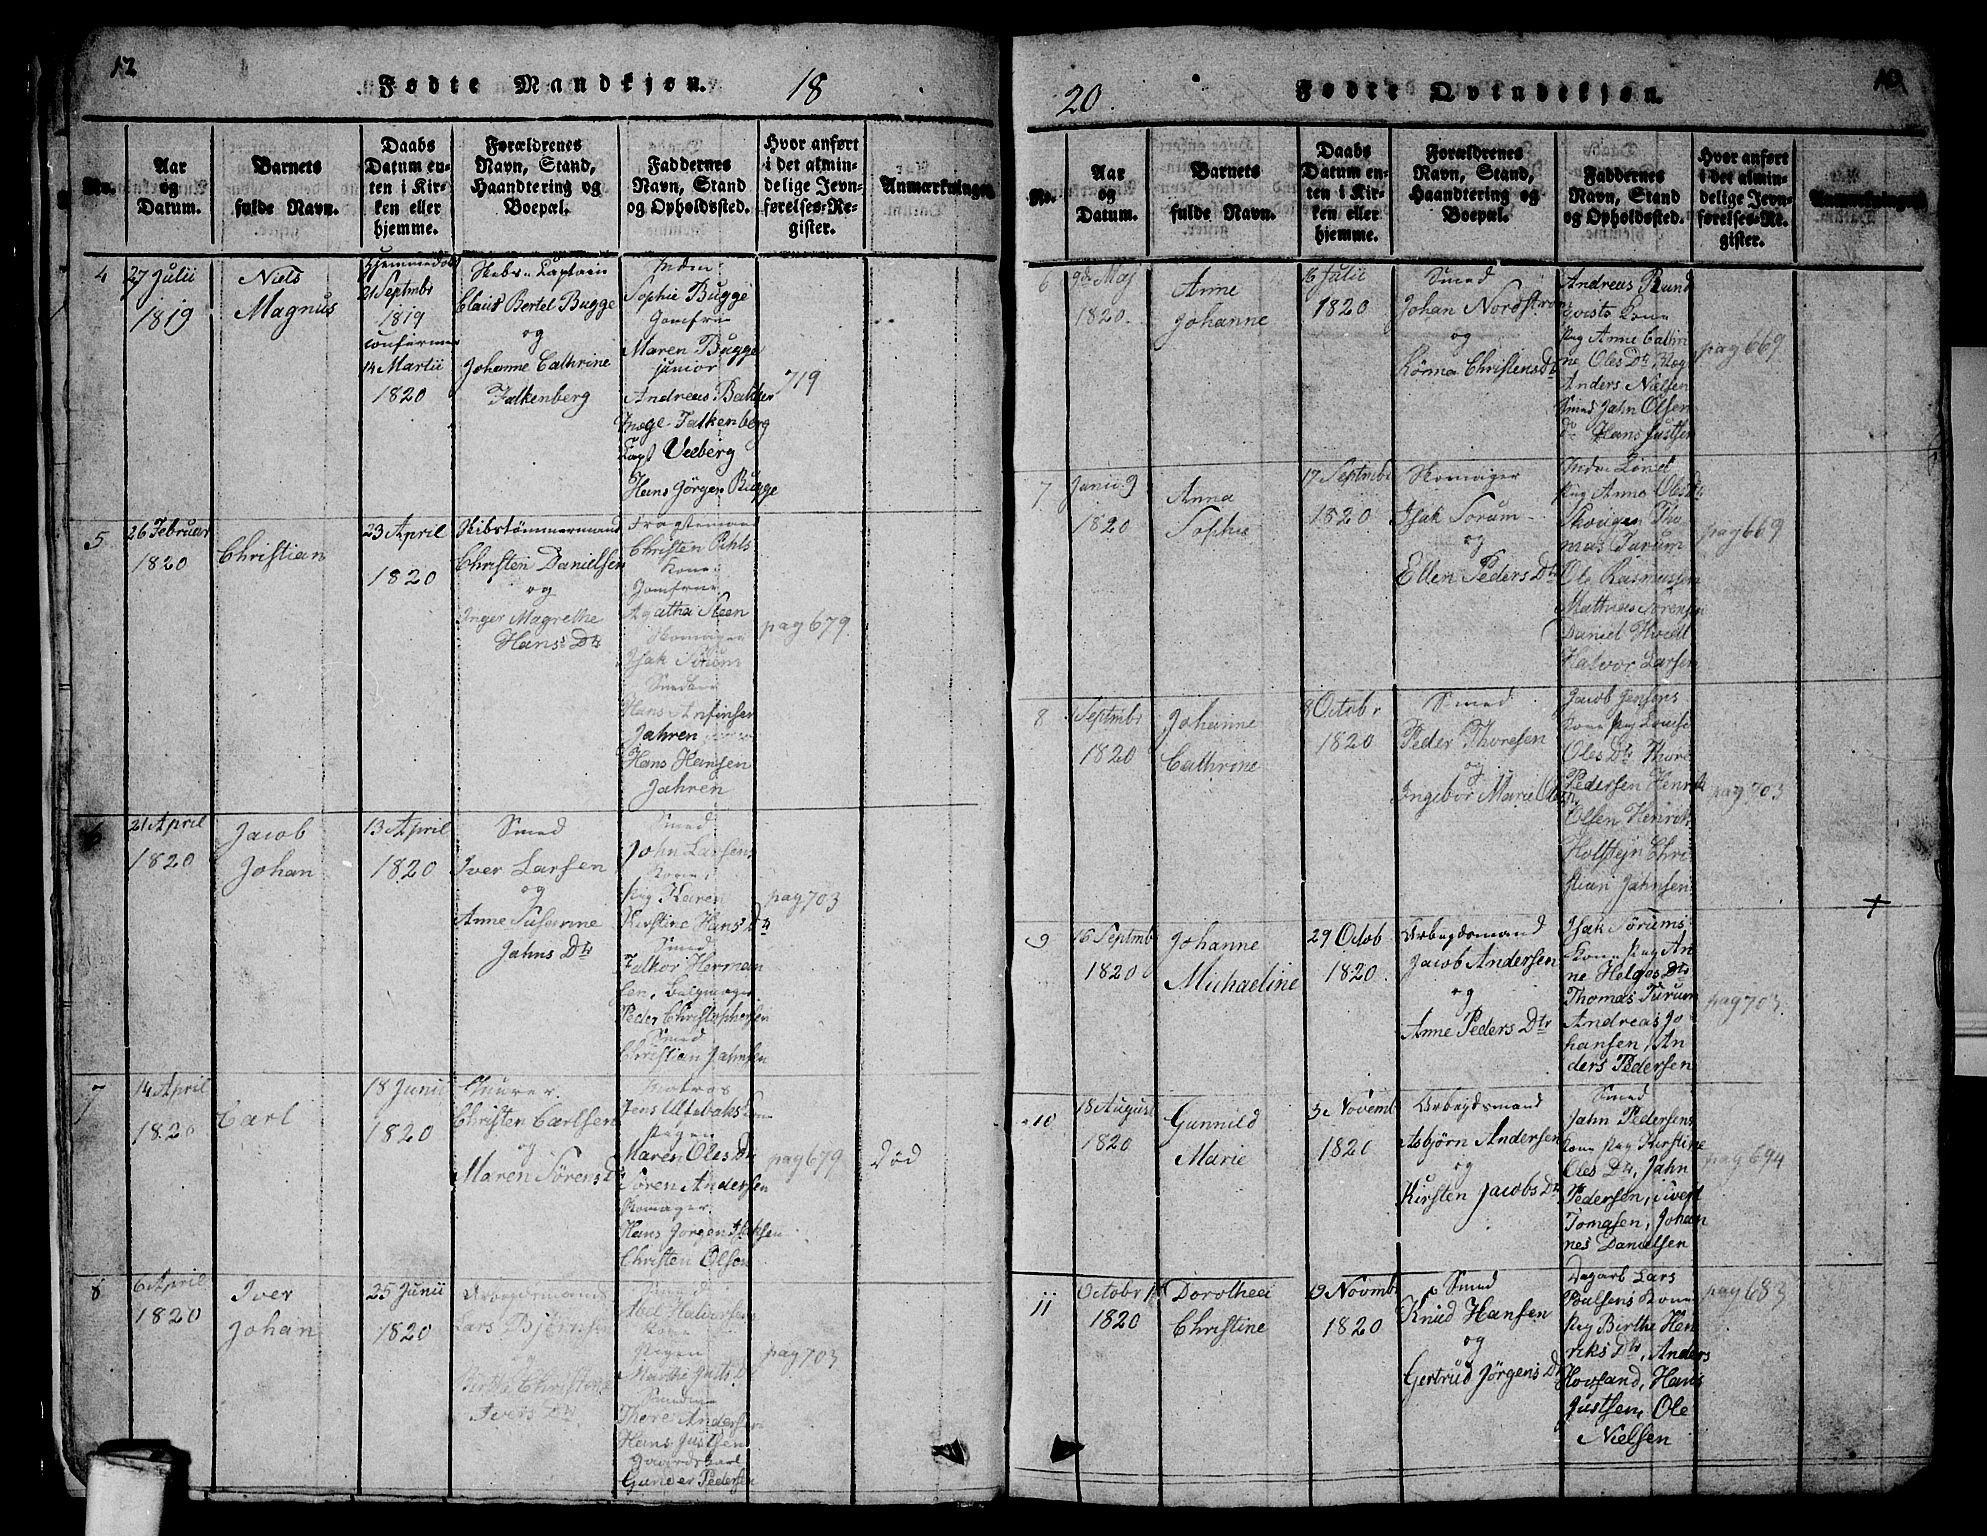 12
Fødte Mandkjøn.
18
No.
Aar
og
Datum.
Barnets
fulde Navn.
Daabs
Datum en-
ten i Kir-
ken eller
hjemme.
Forældrenes
Navn, Stand,
Haandtering og
Boepæl.
Faddernes
Navn, Stand
og Opholdssted.
Hvor anført
i det almin-
delige Jevn-
førelses-Re-
gister.
Anmærkninger
4
27 Julii
1819
Niels
Magnus
Hjemmedøbt
21 Septmbr
1819
confirmer
14 Martii
1820
Skibs-Captain
Claus Bertel Bugge
og
Johanne Cathrine
Falkenberg
Sophie Bugge
Jomfru
Maren Bugge
junior
Andreas
Falkenberg
Hans Jørgen Bugge
719
5
26 Februar
1820
Christian
23 April
1820
Skibstømmermand
Christen Danielsen
og
Inger Magrethe
Hans Dtr
Christen Pihls
Kone
Jomfrue
Agatha Steen
Skomager
Isak Sørum
Hans
Jahren
Hans Hansen
Jahren
pag 679
6
21 April
1820
Jacob
Johan
13 April
1820
Smed
Iver Larsen
og
Anne Susanne
Jahns Dtr
Smed
John Larsens
Kone
Pig Karen
Kirstine Hans Dtr
Smed
Falkor Herman
sen, Belgmager
Peder Christophersen
Smed
Christian Jahnsen
pag 703
7
14 April
1820
Carl
18 Junii
1820
Christen Carlsen
og
Maren Sørens Dtr
Matros
Jens
Pigen
Maren Oles Dtr
Søren Andersen
Skomager
Hans Jørgen
Christen Olsen
pag 679
Død
8
6 April
1820
Iver
Johan
25 Junii
1820
Arbeydsmand
Lars
og
Ivers Dtr
Smed
Kone
Pigen
Marthe
Thore Andersen
Hans Justsen
Gunder Pedersen
pag 703
20.
Fødte Qvindekjøn.
10
No.
Aar
og
Datum.
Barnets
fulde Navn.
Daabs
Datum en-
ten i Kir-
ken eller
hjemme.
Forældrenes
Navn, Stand,
Haandtering og
Boepæl.
Faddernes
Navn, Stand
og Opholdssted.
Hvor anført
i det almin-
delige Jevn-
førelses-Re-
gister.
Anmærkninger
6
9de Maj
1820.
Anne
Johanne
16 Julii
1820
Smed
Johan Nordstrøm
og
Christens Dtr
Andreas Rund
qvists Kone
Pig Anne Cathri
ne Oles Dtr
Anders Nielsen
Smed Jahn Olsen
Do Hans Justsen
pag 669
7
Junii 9
1820
Anna
Sophie
17 Septmbr
1820
Skomager
Isak Sorum
og
Ellen Peders Dtr
Pig Anne Oles Dtr
Tho
mas Turum
Ole Rasmussen
Matthias Sørensen
Daniel
Halvor Larsen
pag 669
8
Septmbr
1820
Johanne
Cathrine
8 Octobr
1820
Smed
Peder Thoresen
og
Ingebor Marie Oles Dtr
Jacob Jensens
Kone Pig
Oles Dtr Thore
Pedersen Henrik
Olsen Henrik
Holstejn Chri
stian Jahnsen
pag 703
9
16 Septmb
1820
Johanne
Michaeline
29 Octob
1820
Arbeydsmand
Jacob Andersen
og
Anne Peders Dtr
Isak Sørums
Kone Pig An
ne Helges Dtr
Thomas Turum
Andreas Jo
hansen, An
ders Pedersen
pag 703.
+
10
18 August
1820
Gunnild
Marie
3 Novemb
1820
Arbeydsmand
Asbjørn Andersen
og
Kirsten Jacobs Dtr
Smed
Jahn Pedersens
Kone Pig Kirstine
Oles Dtr, Jahn
Pedersen, Sivert
Tomasen, Johan
nes Danielsen
pag 694
11
Octobr
1820
Dorothea
Christine
19 Novmb
1820
Smed
Knud Hansen
og
Gertrud Jørgens Dtr
Lars
Poulsens Kone
Pig Birthe Hen
riks Dtr, Anders
Hovland, Hans
Justsen, Ole
Nielsen
pag 683